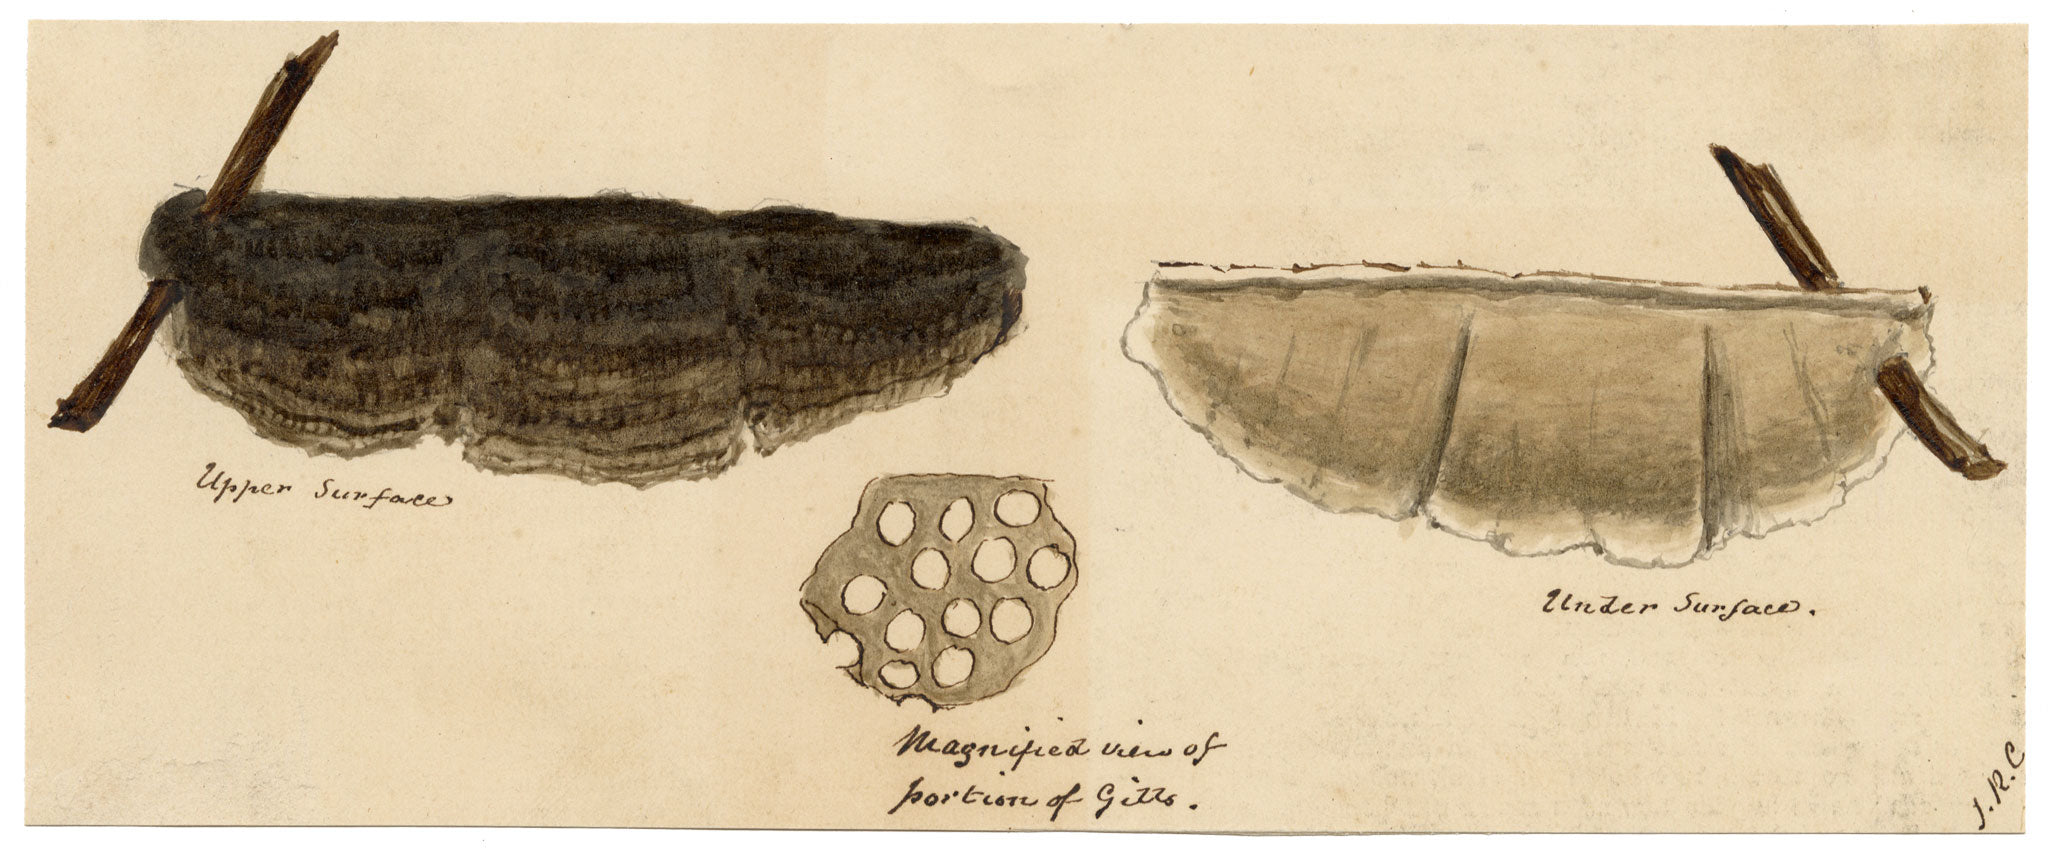 Upper Surface
Magnified view of
portion of Gills.
Under Surface.
J.R.C